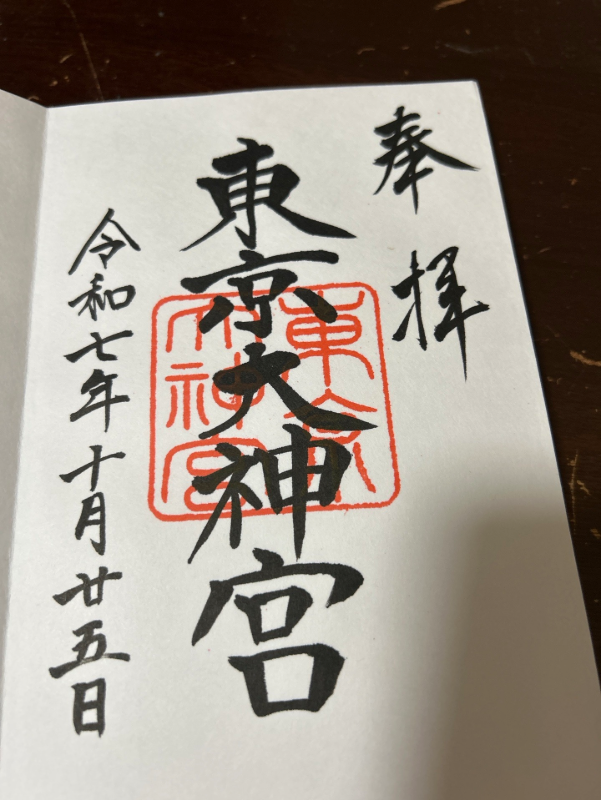 奉拝
東京大神宮
東京大神宮
令和七年十月廿五日